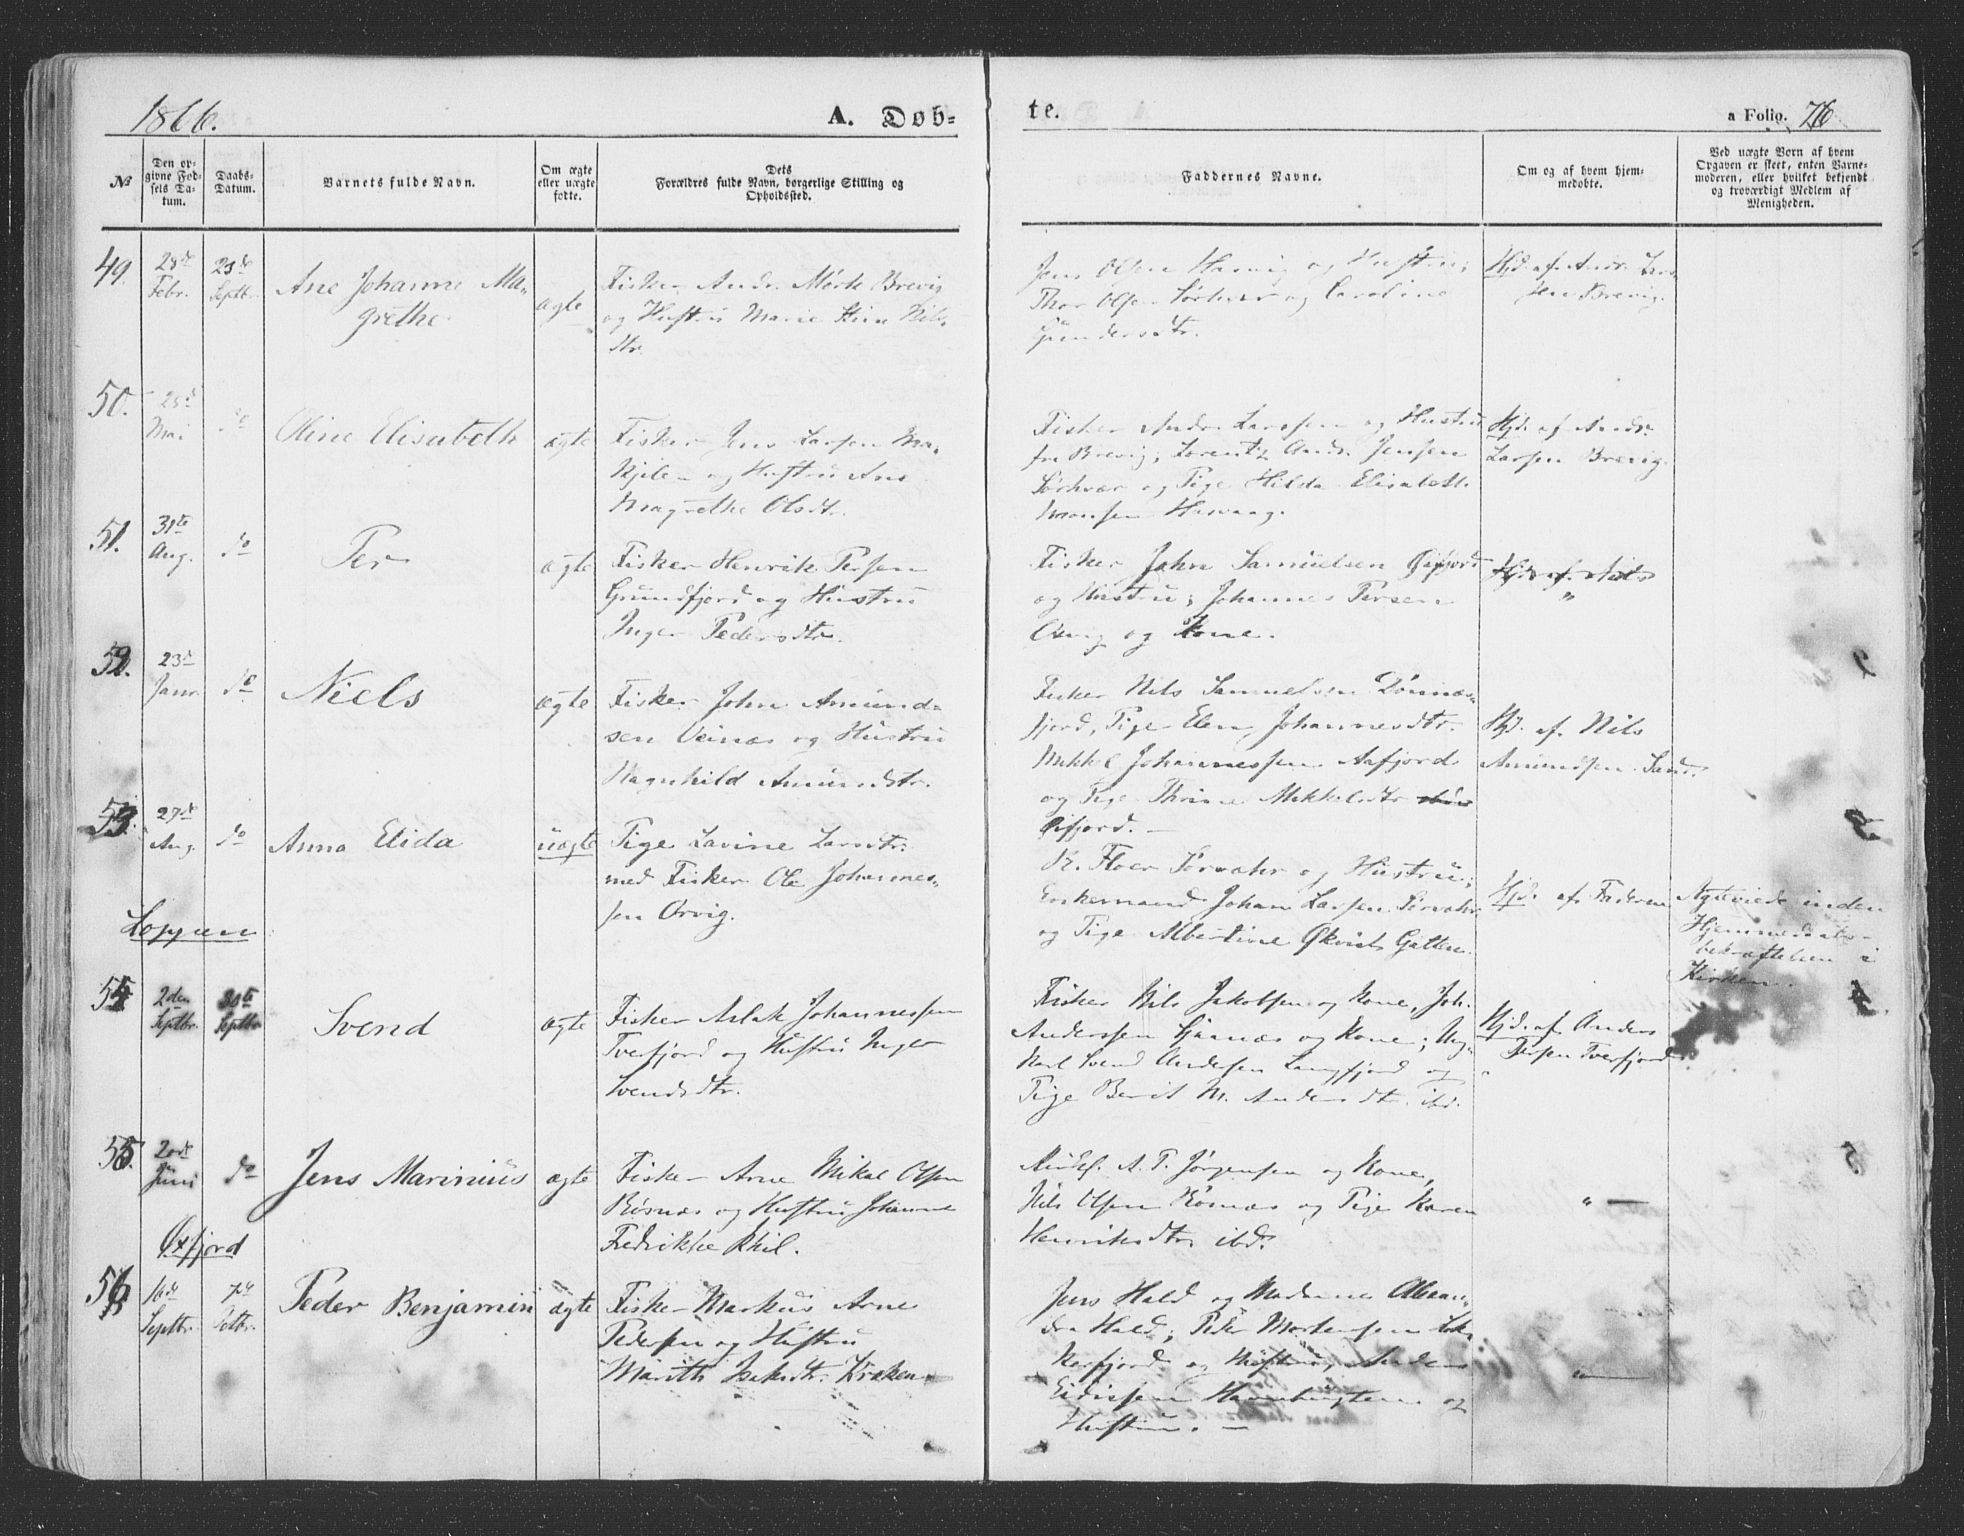 1866.
A. Døb=
te.
a Folio. 76
№
Den op=
givne Fød=
sels Da=
tum.
Daabs=
Datum.
Barnets fulde Navn.
Om ægte
eller uægte
fødte.
Dets
Forældres fulde Navn, borgerlige Stilling og
Opholdssted.
Faddernes Navne.
Om og af hvem hjem=
medøbte.
Ved uægte Børn af hvem
Opgaven er skeet, enten Barne=
moderen, eller hvilket bekjendt
og troværdigt Medlem af
Menigheden.
49.
Febr.
23de
Septbr.
Ane Johanne Ma-
grethe
ægte
Fisker Andr. Mørk Brevig
og Hustru Marie Stine Nils-
dtr.
Jens Olsen Hasvig og Hustru;
Thor Olsen Sørhvær og Caroline
Gundersdtr.
Hjd. af Andr. Lar-
sen Brevig.
50.
Mai
do
Oline Elisabeth
ægte
Fisker Jens Larsen
og Hustru Ane
Magrethe Olsdtr.
Fisker Andr. Larssen og Hustru
fra Brevig; Lorentz Andr. Jensen
Sørhvær og Pige Hilda Elisabeth
Monsen Hasvaag.
Hjd. af Andr.
Larsen Brevig.
51.
31te
Aug.
do
Per
ægte
Fisker Henrik Persen
Grundfjord og Hustru
Inger Pedersdtr.
Fisker John Samuelsen
og Hustru; Johannes Persen
og Kone.
Hjd. af Nils
"
52.
23d
Janr.
do
Niels
ægte
Fisker John Amund-
sen Veinæs og Hustru
Ragnhild Amundsdtr.
Fisker Nils Samuelsen
fjord, Pige Elen Johannesdtr.
Mikkel Johannessen Aafjord
og Pige Thrine Mikkelsdtr.
Hjd. af Nils
Amundsen
53.
27de
Aug.
do
Anna Elida
uægte
Pige Lavine Larsdtr.
med Fisker Ole Johannes-
sen Orvig.
og Hustru;
Enkemand Johan Larsen Sørvahr
og Pige Albertine Qkvist Galten.
Hjd. af Faderen
Agtviede inden
Hjemmedaabs-
bekræftelsen i
Kirken.
Loppen
54
2den
Septbr.
30te
Septbr.
Svend
ægte
Fisker Aslak Johannessen
Tverfjord og Hustru Inger
Svendsdtr.
Fisker Nils Jakobsen og Kone, Joh.
Anderssen og Kone; Ung-
Karl Svend Andersen Langfjord og
Pige Berit M. Andersdtr. ibd.
Hjd. af Anders
Persen Tverfjord
55.
20de
Juni
do
Jens Marinius
ægte
Fisker Arne Mikal Olsen
og Hustru Johanne
Fredrikke Phil.
A. P. Jørgensen og Kone,
Nils Olsen og Pige Karen
Henriksdtr. ibd.
" —
Øxfjord
56
16de
Septbr.
7de
Octbr.
Peder Benjamin
ægte
Fisker Markus Arne
Pedersen og Hustru
Marith Isaksdtr. Kraken.
Jens Hald og Madame Alexan-
dra Hald; Peder Mortensen
fjord og Hustru, Anders
og
Hustru. —